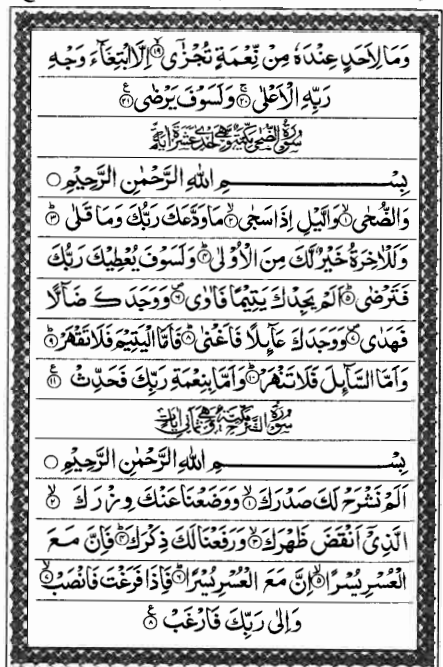 وَمَا لِاَحَدٍ عِنْدَهٗ مِنْ نِّعْمَةٍ تُجْزٰۤى ۙ‏﴿۱۹﴾ اِلَّا ابْتِغَآءَ وَجْهِ
رَبِّهِ الْاَعْلٰى ۚ‏﴿۲۰﴾ وَلَسَوْفَ يَرْضٰى ‏﴿۲۱﴾ ع
سُوْرَةُ الضُّحٰى مَكِّيَّةٌ وَّهِيَ اِحْدٰى عَشْرَةَ اٰيَةً
بِسْمِ اللهِ الرَّحْمٰنِ الرَّحِيْمِ ○
وَالضُّحٰى ۙ‏﴿۱﴾ وَالَّيْلِ اِذَا سَجٰى ۙ‏﴿۲﴾ مَا وَدَّعَكَ رَبُّكَ وَمَا قَلٰى ؕ‏﴿۳﴾
وَلَلْاٰخِرَةُ خَيْرٌ لَّكَ مِنَ الْاُوْلٰى ؕ‏﴿۴﴾ وَلَسَوْفَ يُعْطِيْكَ رَبُّكَ
فَتَرْضٰى ؕ‏﴿۵﴾ اَلَمْ يَجِدْكَ يَتِيْمًا فَاٰوٰى ۪‏﴿۶﴾ وَوَجَدَكَ ضَآلًّا
فَهَدٰى ۪‏﴿۷﴾ وَوَجَدَكَ عَآئِلًا فَاَغْنٰى ؕ‏﴿۸﴾ فَاَمَّا الْيَتِيْمَ فَلَا تَقْهَرْ ؕ‏﴿۹﴾
وَاَمَّا السَّآئِلَ فَلَا تَنْهَرْ ؕ‏﴿۱۰﴾ وَاَمَّا بِنِعْمَةِ رَبِّكَ فَحَدِّثْ ‏﴿۱۱﴾ ع
بِسْمِ اللهِ الرَّحْمٰنِ الرَّحِيْمِ ○
اَلَمْ نَشْرَحْ لَكَ صَدْرَكَ ۙ‏﴿۱﴾ وَوَضَعْنَا عَنْكَ وِزْرَكَ ۙ‏﴿۲﴾
الَّذِيْۤ اَنْقَضَ ظَهْرَكَ ۙ‏﴿۳﴾ وَرَفَعْنَا لَكَ ذِكْرَكَ ؕ‏﴿۴﴾ فَاِنَّ مَعَ
الْعُسْرِ يُسْرًا ۙ‏﴿۵﴾ اِنَّ مَعَ الْعُسْرِ يُسْرًا ؕ‏﴿۶﴾ فَاِذَا فَرَغْتَ فَانْصَبْ ۙ‏﴿۷﴾
وَاِلٰى رَبِّكَ فَارْغَبْ ‏﴿۸﴾ ع